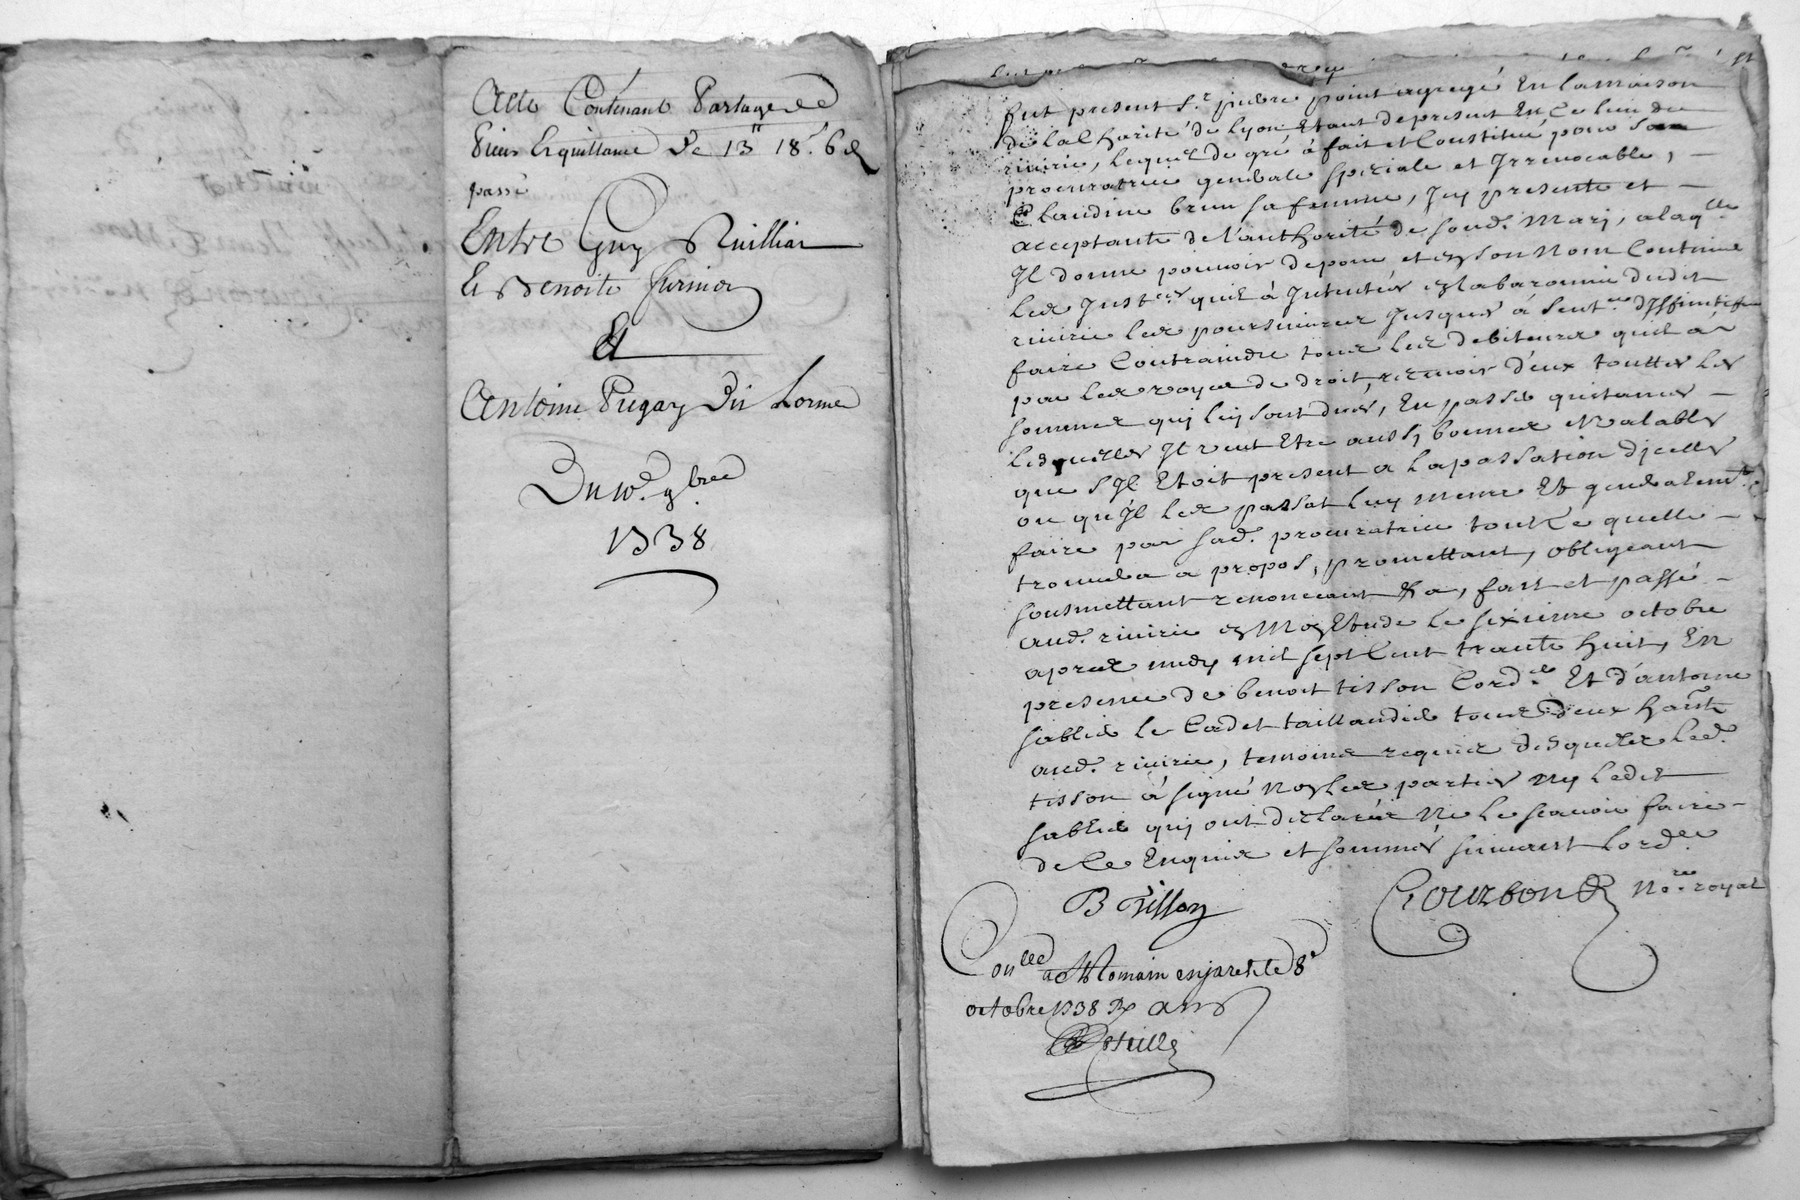 Acte Contenant Partage de
biens Et quittance De 13ll 18s 6d
passé
Entre Guy Ruillian
Et Benoite furnion
Et
Antoine Pugay Dit Lorme
Du 10e 9bre
1738
fut present Sr pierre point agregé En la maison
de la Charité de Lyon Etant de present En Ce lieu de
rivirie, lequel de gré à fait et Constitué pour Sa
procuratrice generale speciale et Irrevocable,
Claudine brun sa femme, Icy presente et
acceptante de l'authorité de soud. Mary, a laqlle
Il donne pouvoir de pour et en son Nom Continuer
les Instces quil à Intentées en la baronnie dudit
rivirie les poursuivres Jusques à Sentce diffinitive
faire Contraindre tous les debiteurs quil a
par les voyes de droit, recevoir d'eux touttes les
sommes quj luy sont dues, En passer quitances
lesquelles Il veut Etre aussj bonnes et valables
que s'Il Etoit present a la passation d'jcelles
ou qu'Il les passat luy meme Et generalemt
faire par sad. procuratrice tout Ce quelle
trouvera a propos, promettant, obligeant
sousmettant renonceant &a, fait et passé
aud. rivirie en Mon Etude le sixieme octobre
apres midy mil sept Cent trante huit, En
presence de benoit tisson Cordr Et d'antoine
sablier le Cadet taillandier tous deux habts
aud. rivirie, temoins requis desquels led.
tisson à signé Non les parties Ny ledit
sablier quj ont declaré Ne le scavoir faire
de Ce Enquis et sommés suivant lordce
B Tisson
Gourbon Nore royal
Conllé a St Romain en jarest le 8e
octobre 1738 Rx